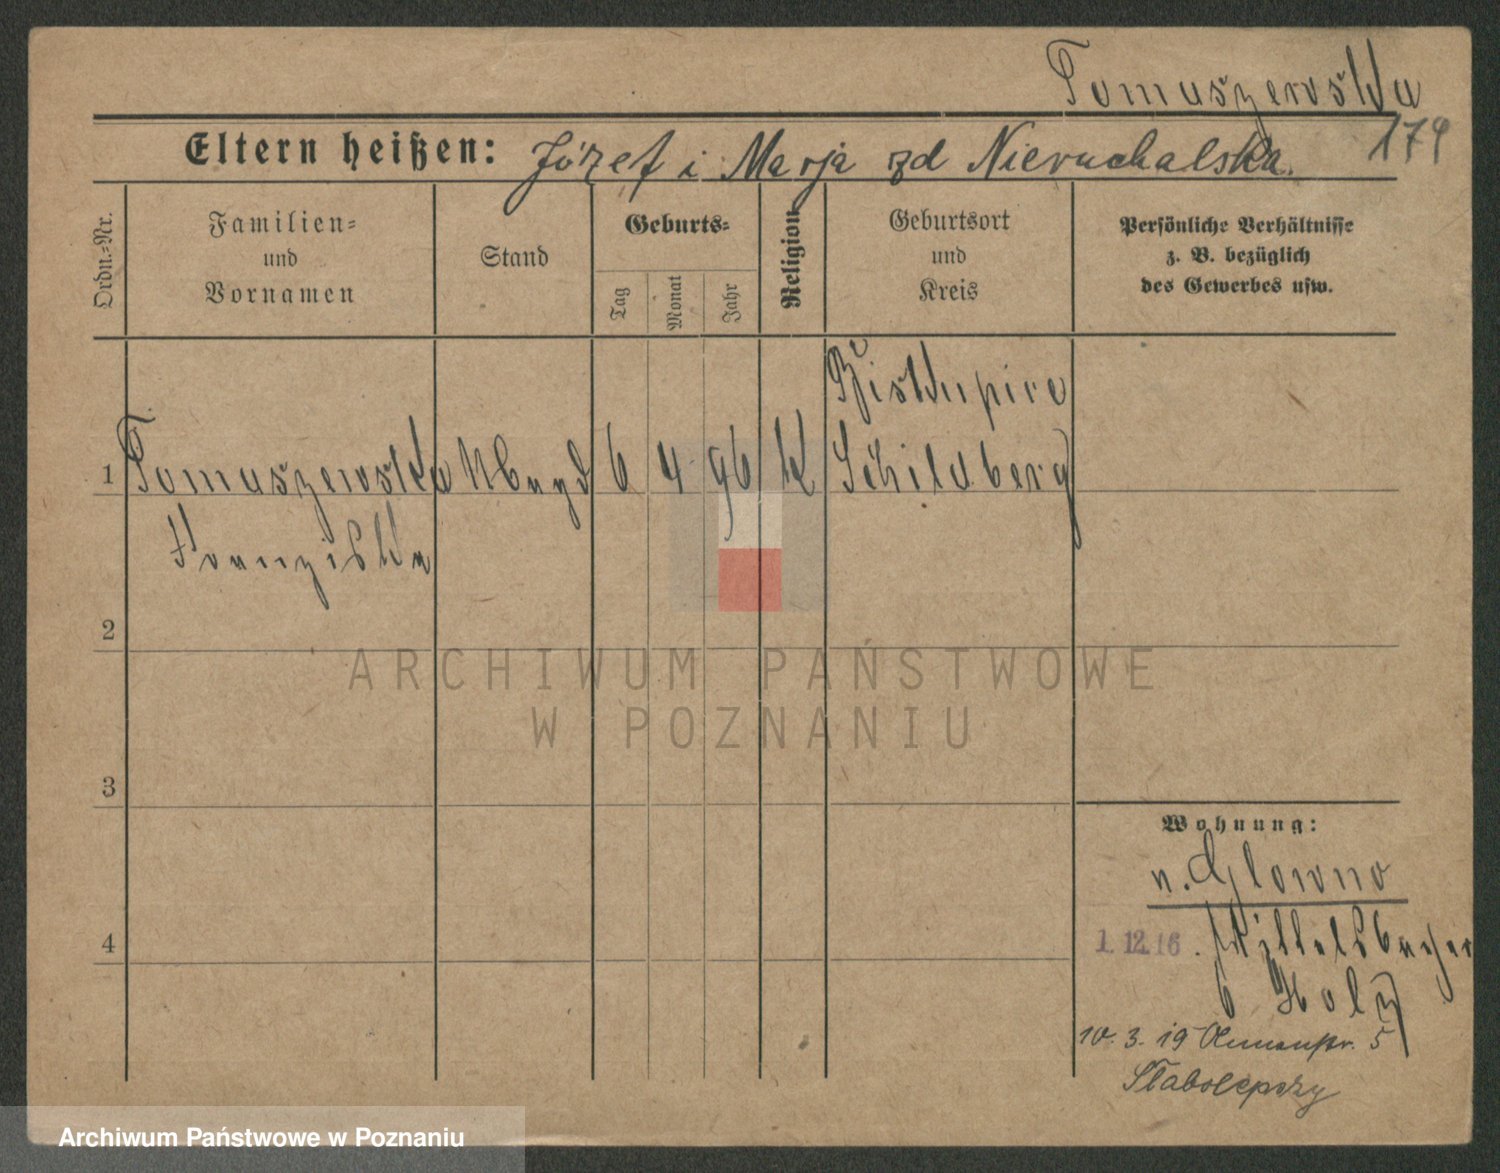 Tomaszewska
174
Eltern heißen: Józef i Marja zd Nieruchalska.
Ordn.-Nr.
Familien-
und
Vornamen
Stand
Geburts-
Tag
Monat
Jahr
Religion
Geburtsort
und
Kreis
Persönliche Verhältnisse
z. B. bezüglich
des Gewerbes usw.
Biskupice
1 Tomaszewska 6 4 96 K Schildberg
Franziska
2
3
4
Wohnung:
n. Glowno
1. 12. 16. Wittelsbacher
6 Holz
10. 3. 19 5
Słabolepszy
ARCHIWUM PAŃSTWOWE
W POZNANIU
Archiwum Państwowe w Poznaniu